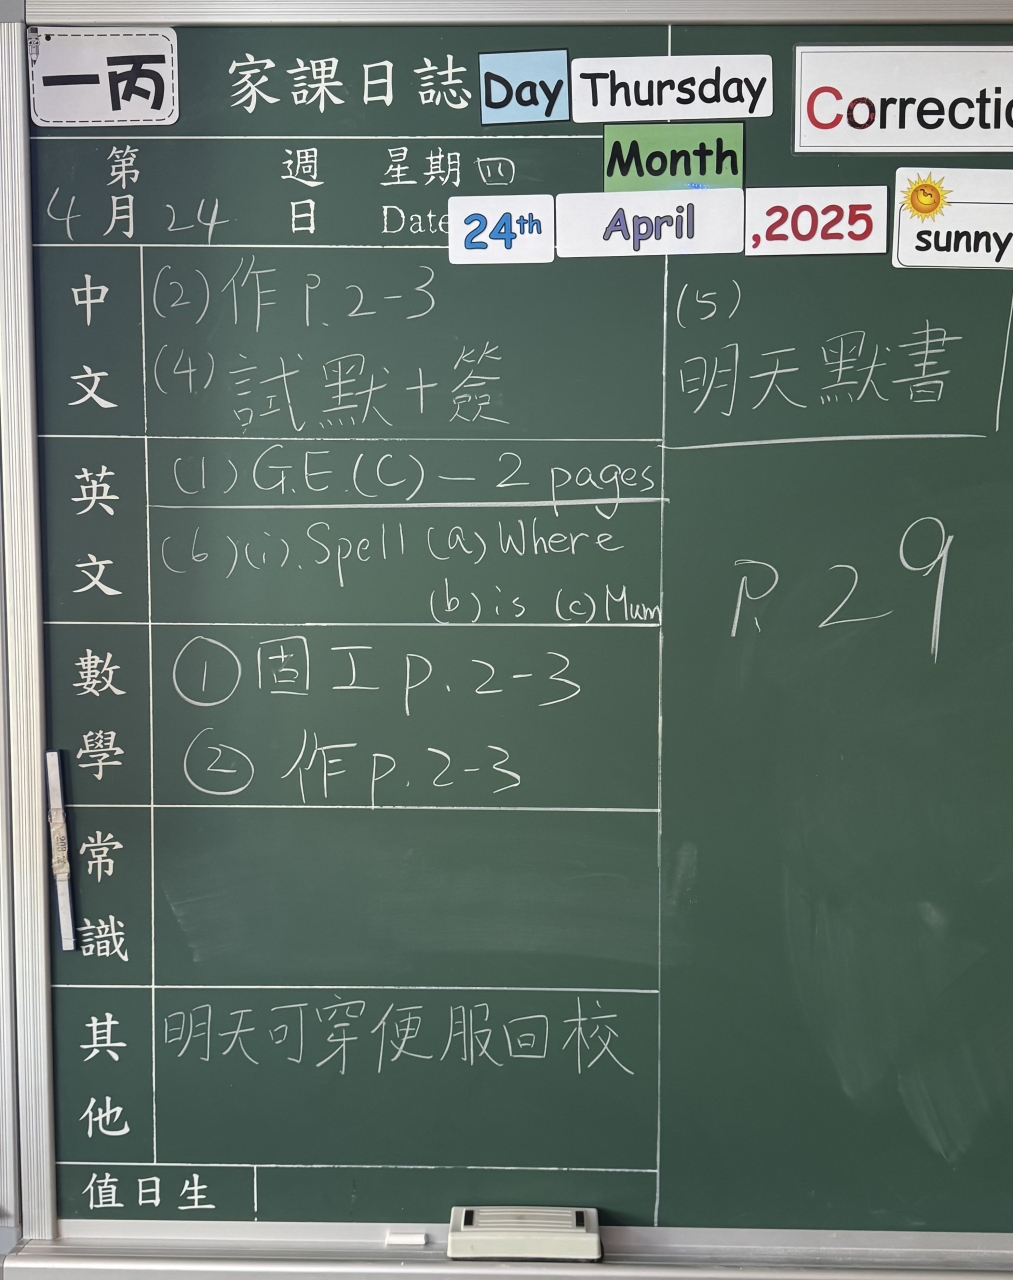 一丙 家課日誌 Day Thursday Correctio
第 週 星期四 Month
4月24日 Date 24th April ,2025 sunny
中文
(2)作 P.2-3
(4)試默+簽
(5)
明天默書
英文
(1) G.E.(C) — 2 pages
(6)(i). Spell (a) Where
(b) is (c) Mum
P. 29
數學
① 固工 p.2-3
② 作 p.2-3
常識
其他
明天可穿便服回校
值日生